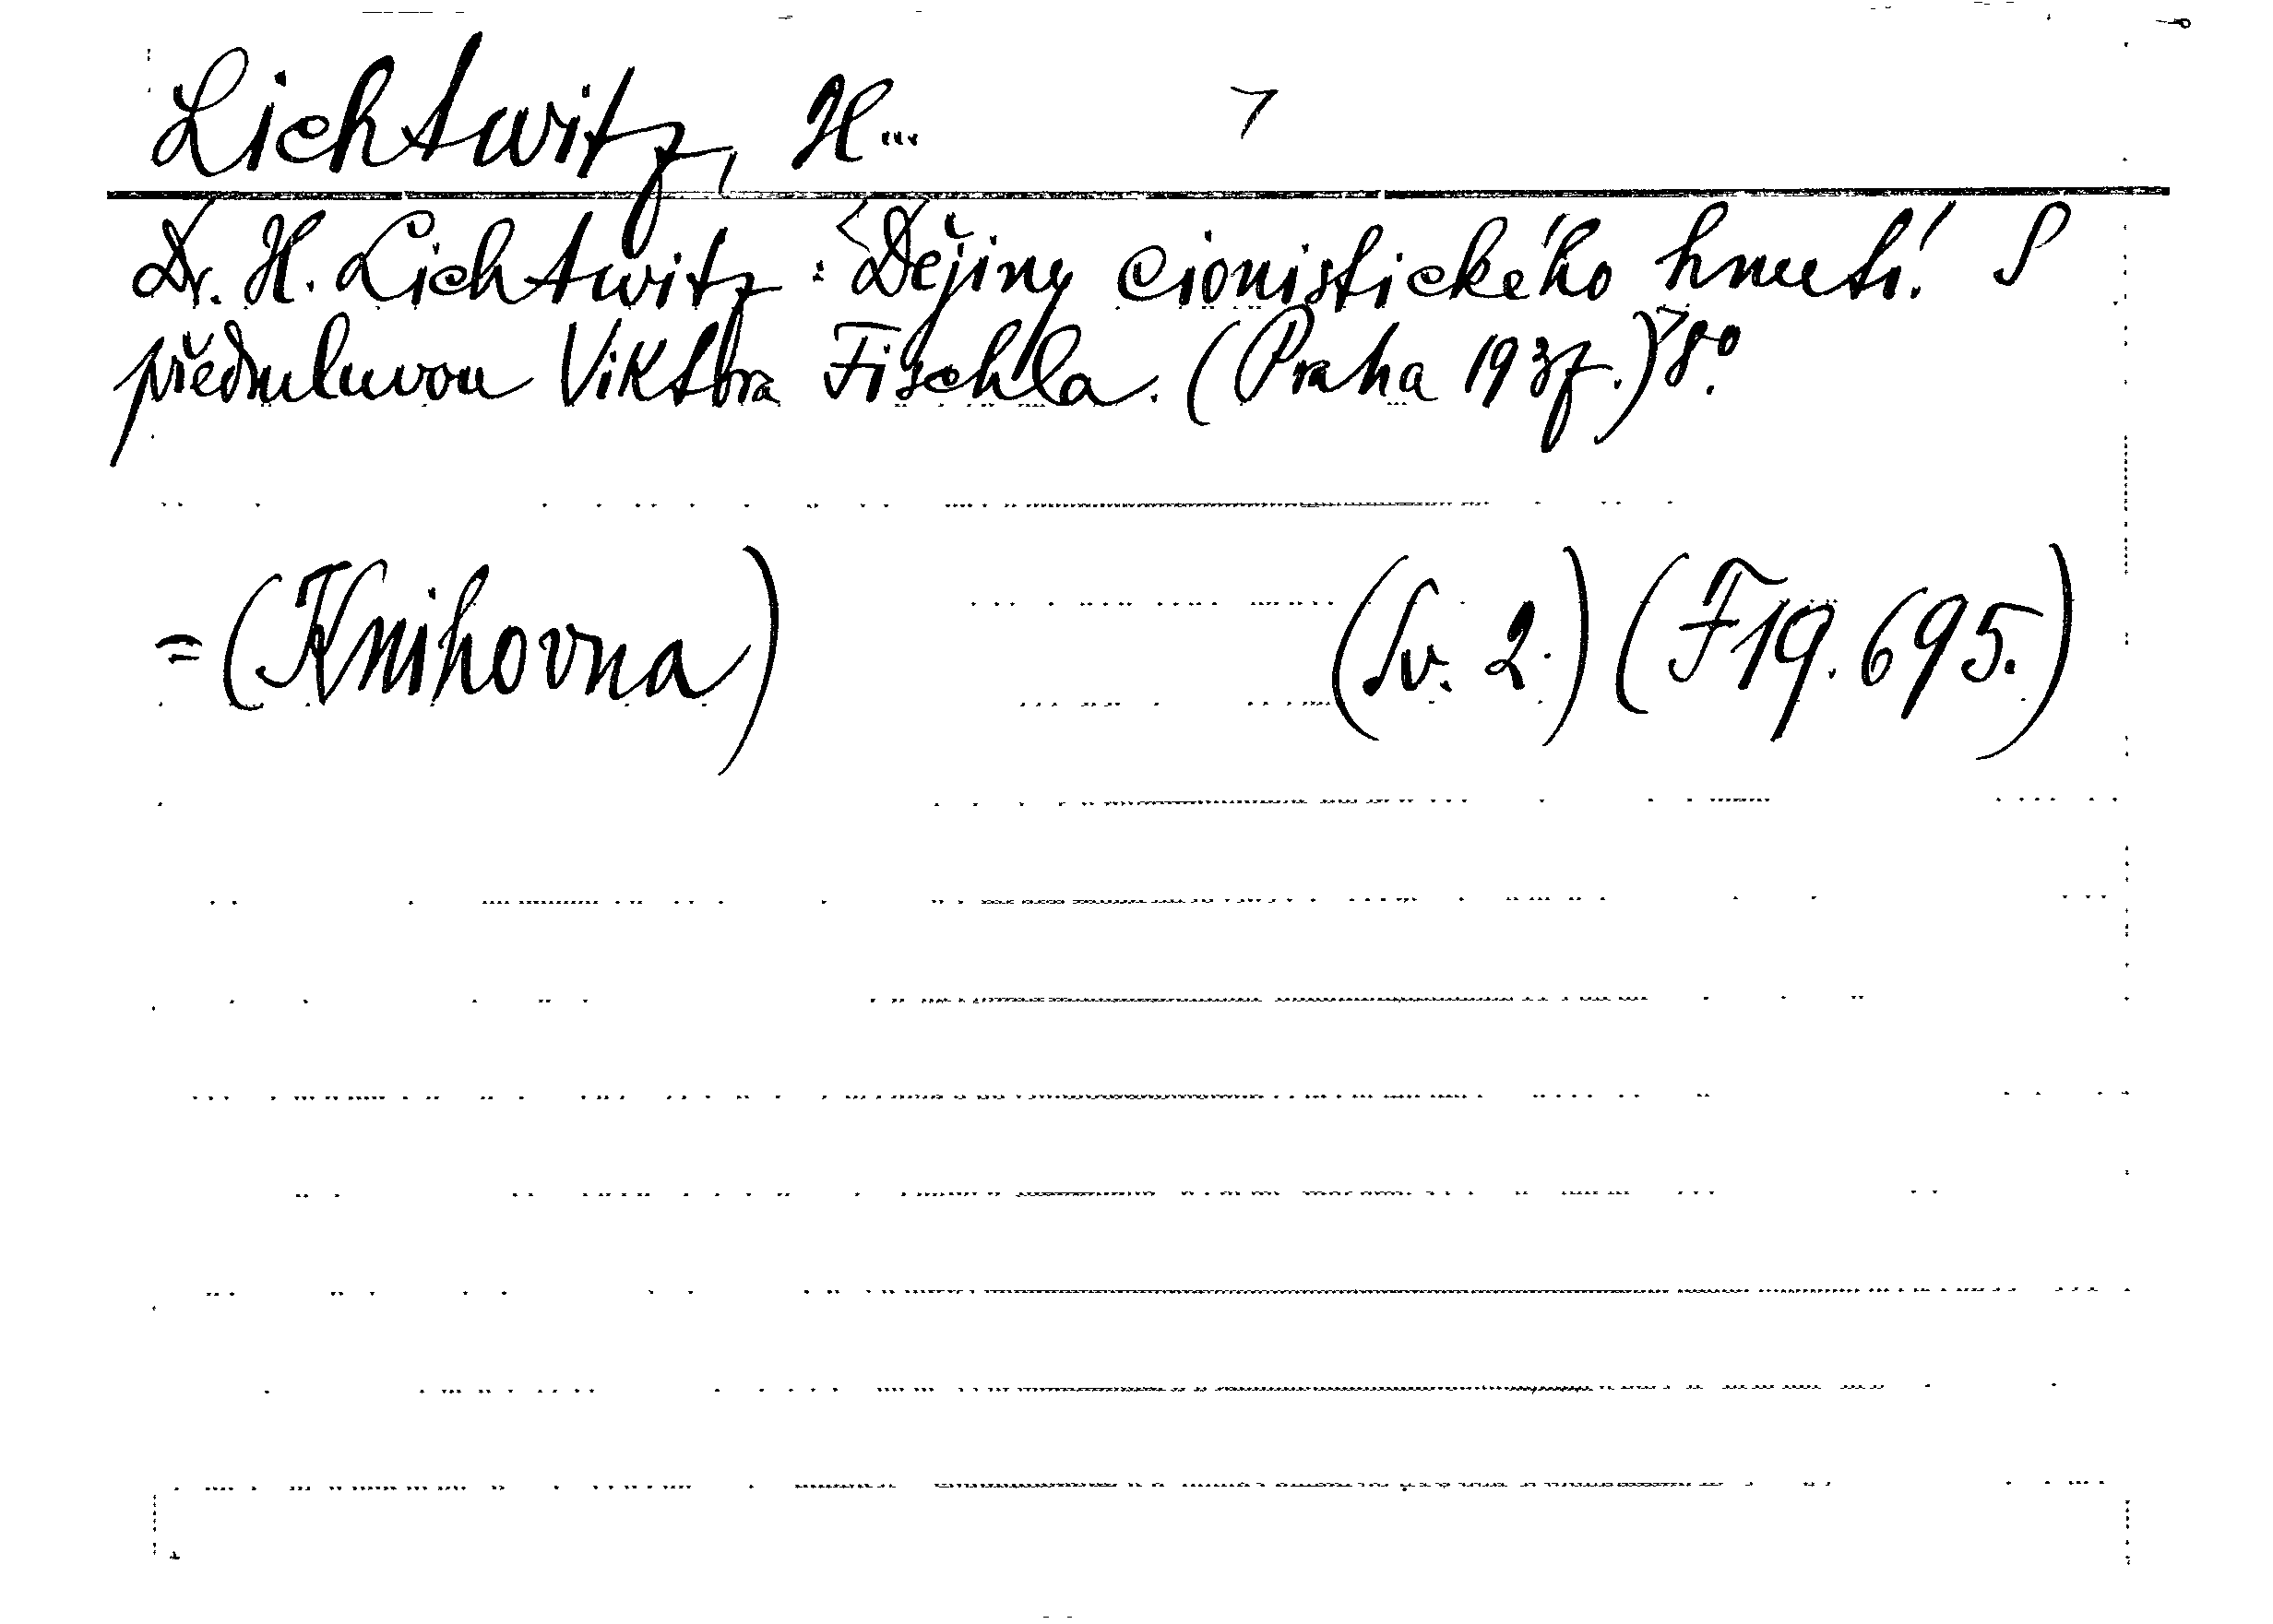 Lichtwitz, H...
Dr. H. Lichtwitz: Dějiny cionistického hnutí. S
předmluvou Viktora Fischla. (Praha 1937.) 8°.
=(Knihovna) (Sv. 2.) (F19.695.)